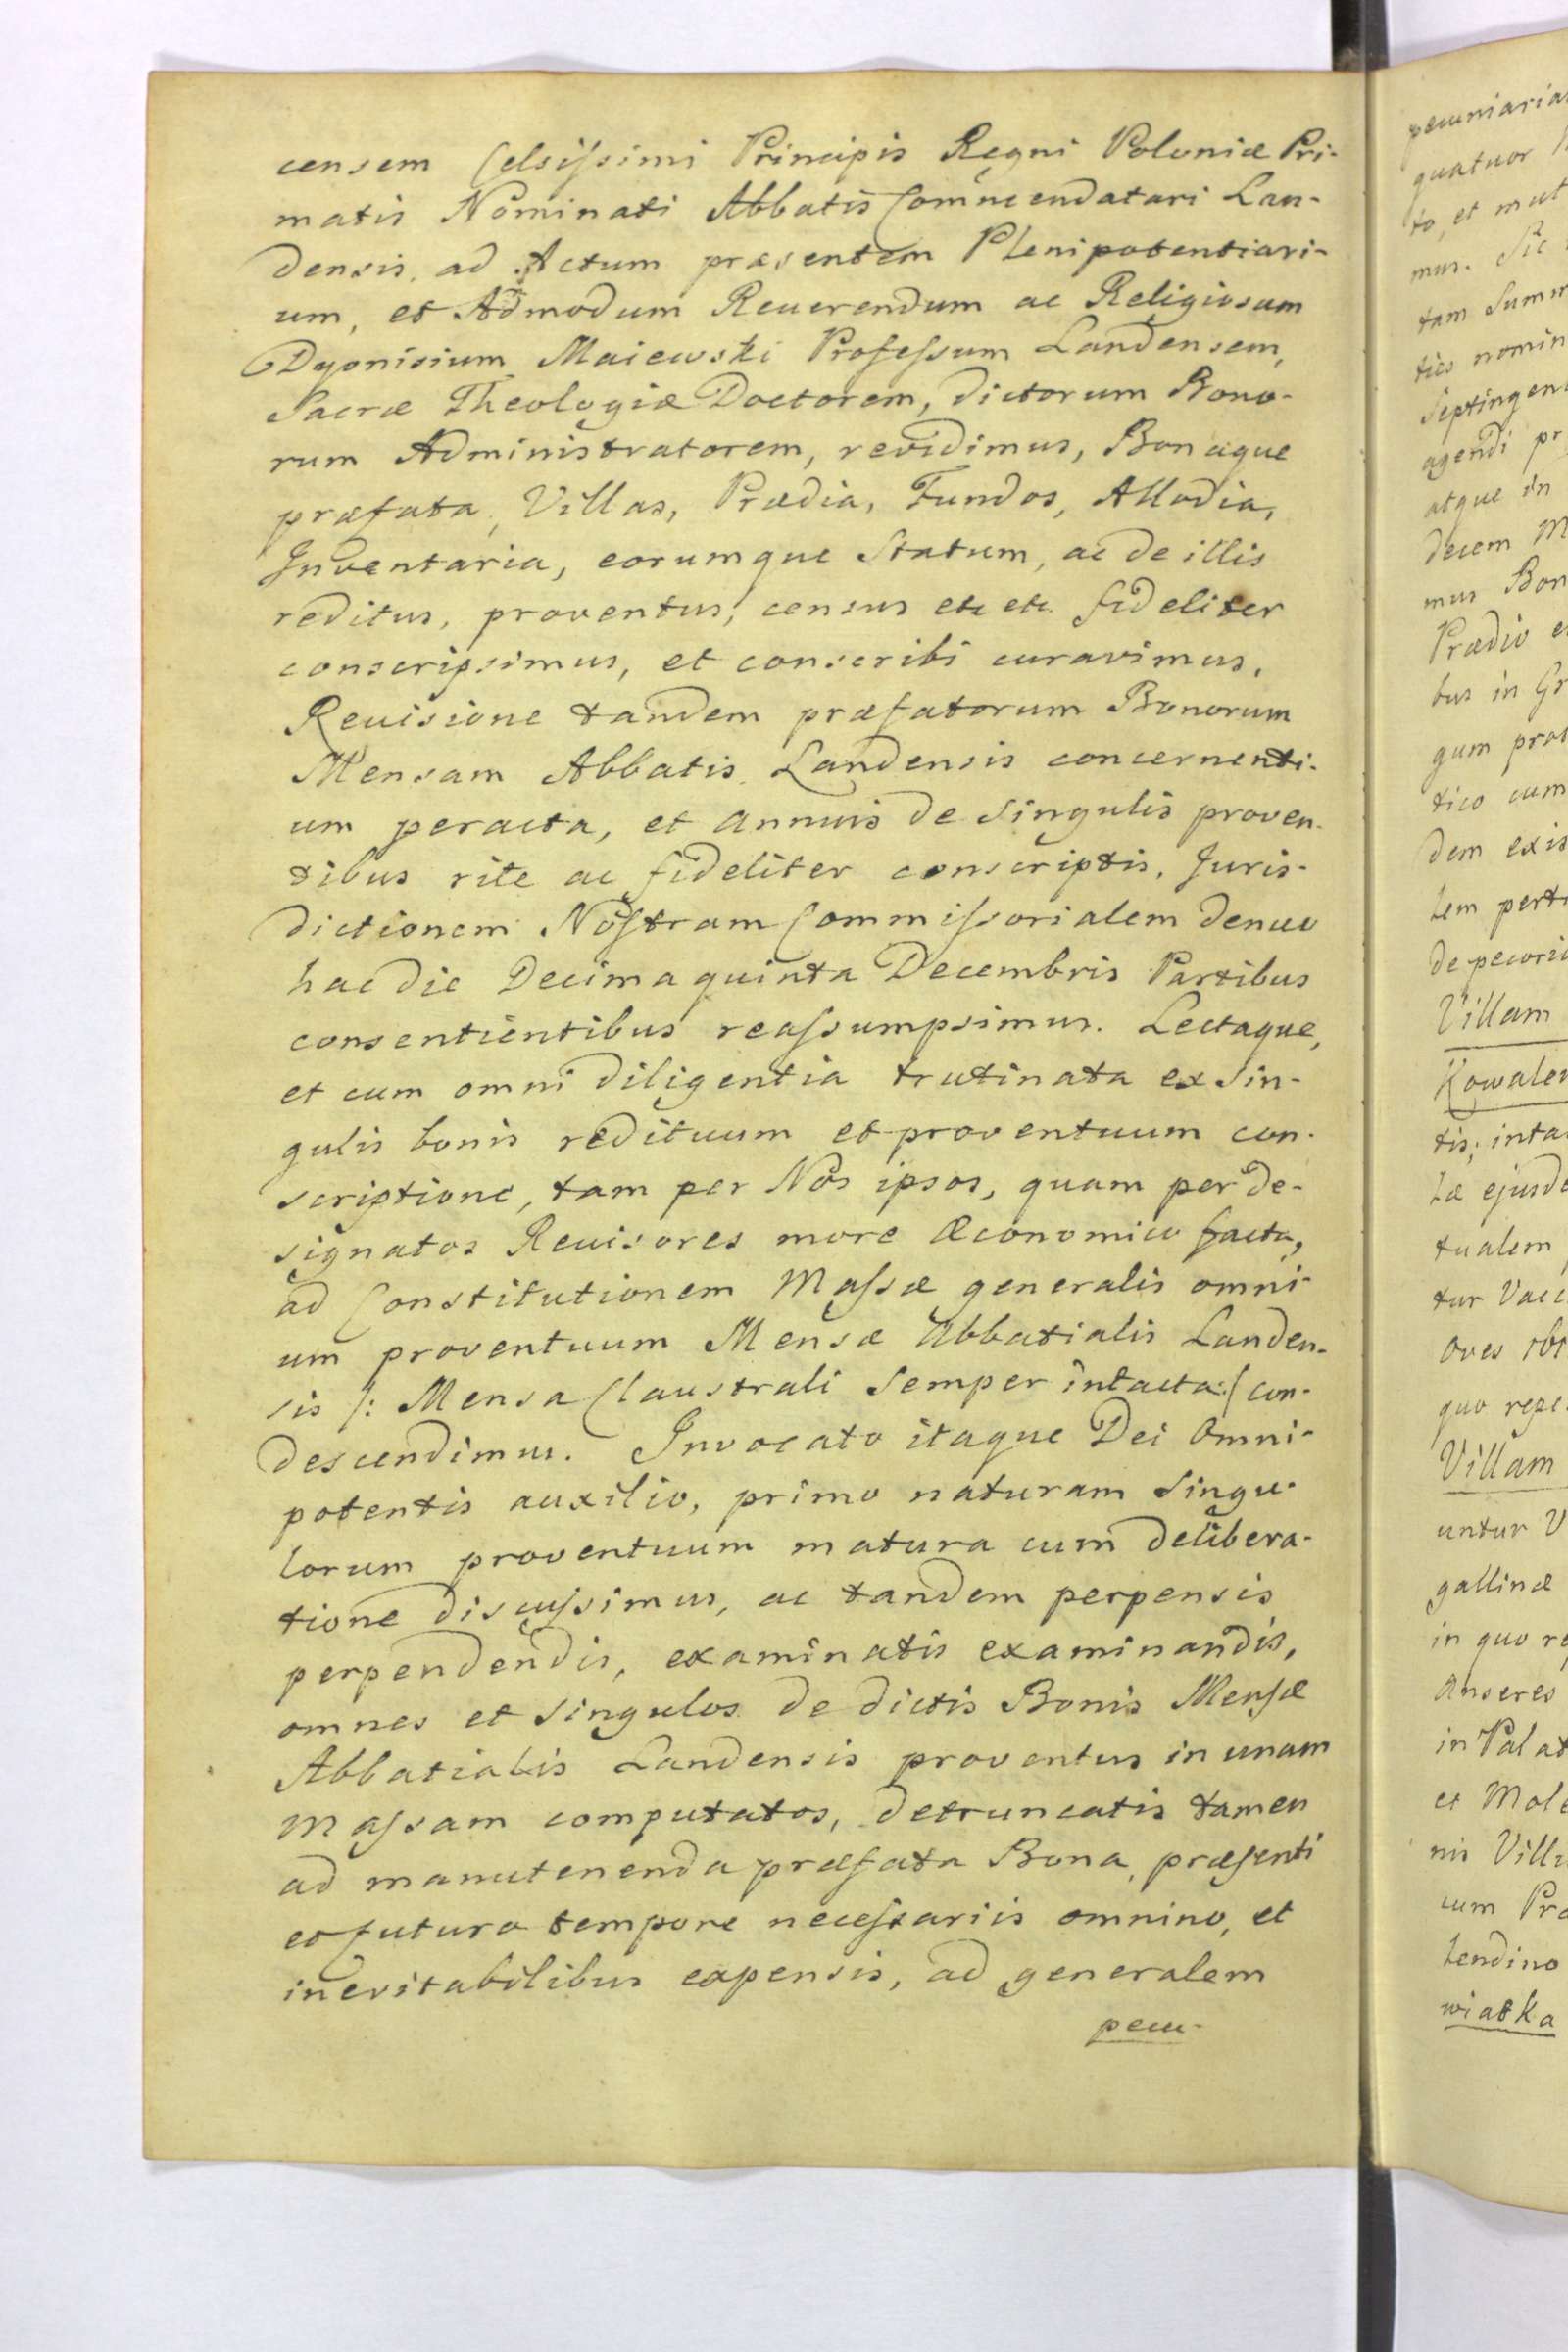 censem Celsissimi Principis Regni Poloniæ Pri-
matis Nominati Abbatis Commendatari Lan-
densis, ad Actum præsentem Plenipotentiari-
um, et Admodum Reuerendum ac Religiosum
Dyonisium Maiewski Professum Landensem,
Sacræ Theologiæ Doctorem, dictorum Bono-
rum Administratorem, revidimus, Bonaque
præfata, Villas, Prædia, Fundos, Allodia,
Inventaria, eorumque Statum, ac de illis
reditus, proventus, census etc etc. fideliter
conscripsimus, et conscribi curavimus,
Reuisione tandem præfatorum Bonorum
Mensam Abbatis Landensis concernenti-
um peracta, et annuis de singulis proven-
tibus rite ac fideliter conscriptis, Juris-
dictionem Nostram Commissorialem denuo
hac die Decima quinta Decembris Partibus
consentientibus reassumpsimus. Lectaque,
et cum omni diligentia trutinata ex sin-
gulis bonis redituum et proventuum con-
scriptione, tam per Nos ipsos, quam per de-
signatos Reuisores more Œconomico facta,
ad Constitutionem Massæ generalis omni-
um proventuum Mensæ Abbatialis Landen-
sis /: Mensa Claustrali semper intacta :/ con-
descendimus. Invocato itaque Dei Omni-
potentis auxilio, primo naturam singu-
lorum proventuum matura cum delibera-
tione discussimus, ac tandem perpensis
perpendendis, examinatis examinandis,
omnes et singulos de dictis Bonis Mensæ
Abbatialis Landensis proventus in unam
Massam computatos, detruncatis tamen
ad manutenenda præfata Bona, præsenti
et futuro tempore necessariis omnino, et
inevitabilibus expensis, ad generalem
pecu-
pecuniaria
quatuor
to, et mut
mus. Sic
tam Summ
ties nomin
Septingent
agendi pr
atque in
decem M
mus Bon
Prædio e
bus in Gr
gum prat
tico cum
dem exis
tem perti
de pecori
Villam
Kowalew
tis; inta
tæ ejusde
tualem
tur Vacc
Oves
quo repe
Villam
untur V
gallinæ
in quo re
Anseres
in Palat
et Mole
nis Villi
cum Præ
tendino
wiatka